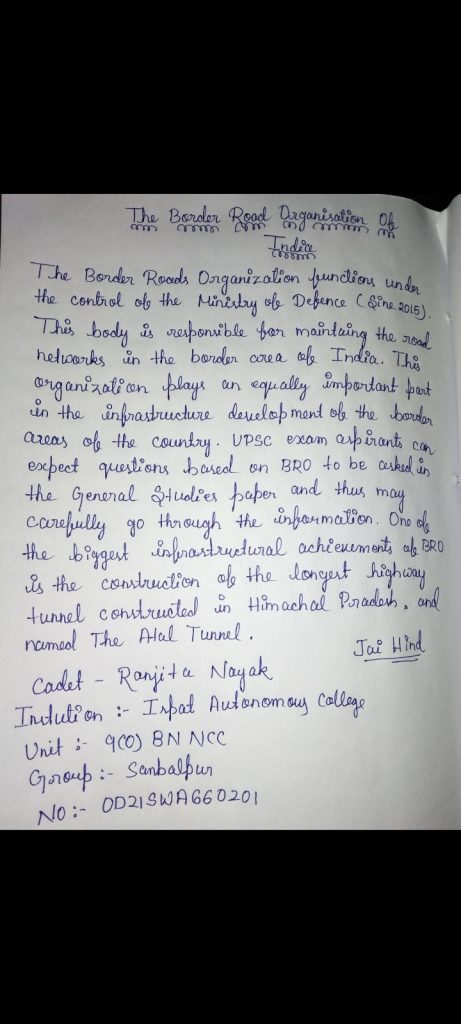 The Border Road Organisation Of
India
The Border Roads Organization functions under
the control of the Ministry of Defence (Sine 2015).
This body is responsible for maintaing the road
networks in the border area of India. This
organization plays an equally important part
in the infrastructure development of the border
areas of the country. UPSC exam aspirants can
expect questions based on BRO to be asked in
the General Studies paper and thus may
carefully go through the information. One of
the biggest infrastructural achievements of BRO
is the construction of the longest highway
tunnel constructed in Himachal Pradesh, and
named The Atal Tunnel.
Jai Hind
Cadet - Ranjita Nayak
Instution :- Ispat Autonomous College
Unit :- 9(O) BN NCC
Group :- Sanbalpur
NO :- OD21SWA660201